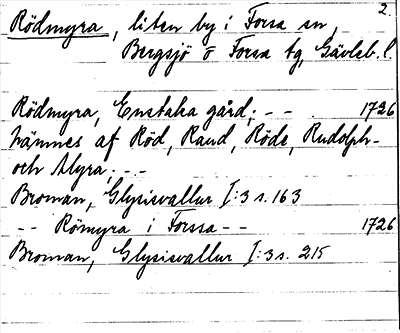 2.
Rödmyra, liten by i Forsa sn,
Bergsjö o Forsa tg, Gävleb. l.
Rödmyra, Enstaka gård; - - 1726
nämnes af Röd, Raud, Röde, Rudolph-
och Myra. - -
Broman, Glysisvallur I:3 s. 163
-- Römyra i Forssa -- 1726
Broman, Glysisvallur I:3 s. 215